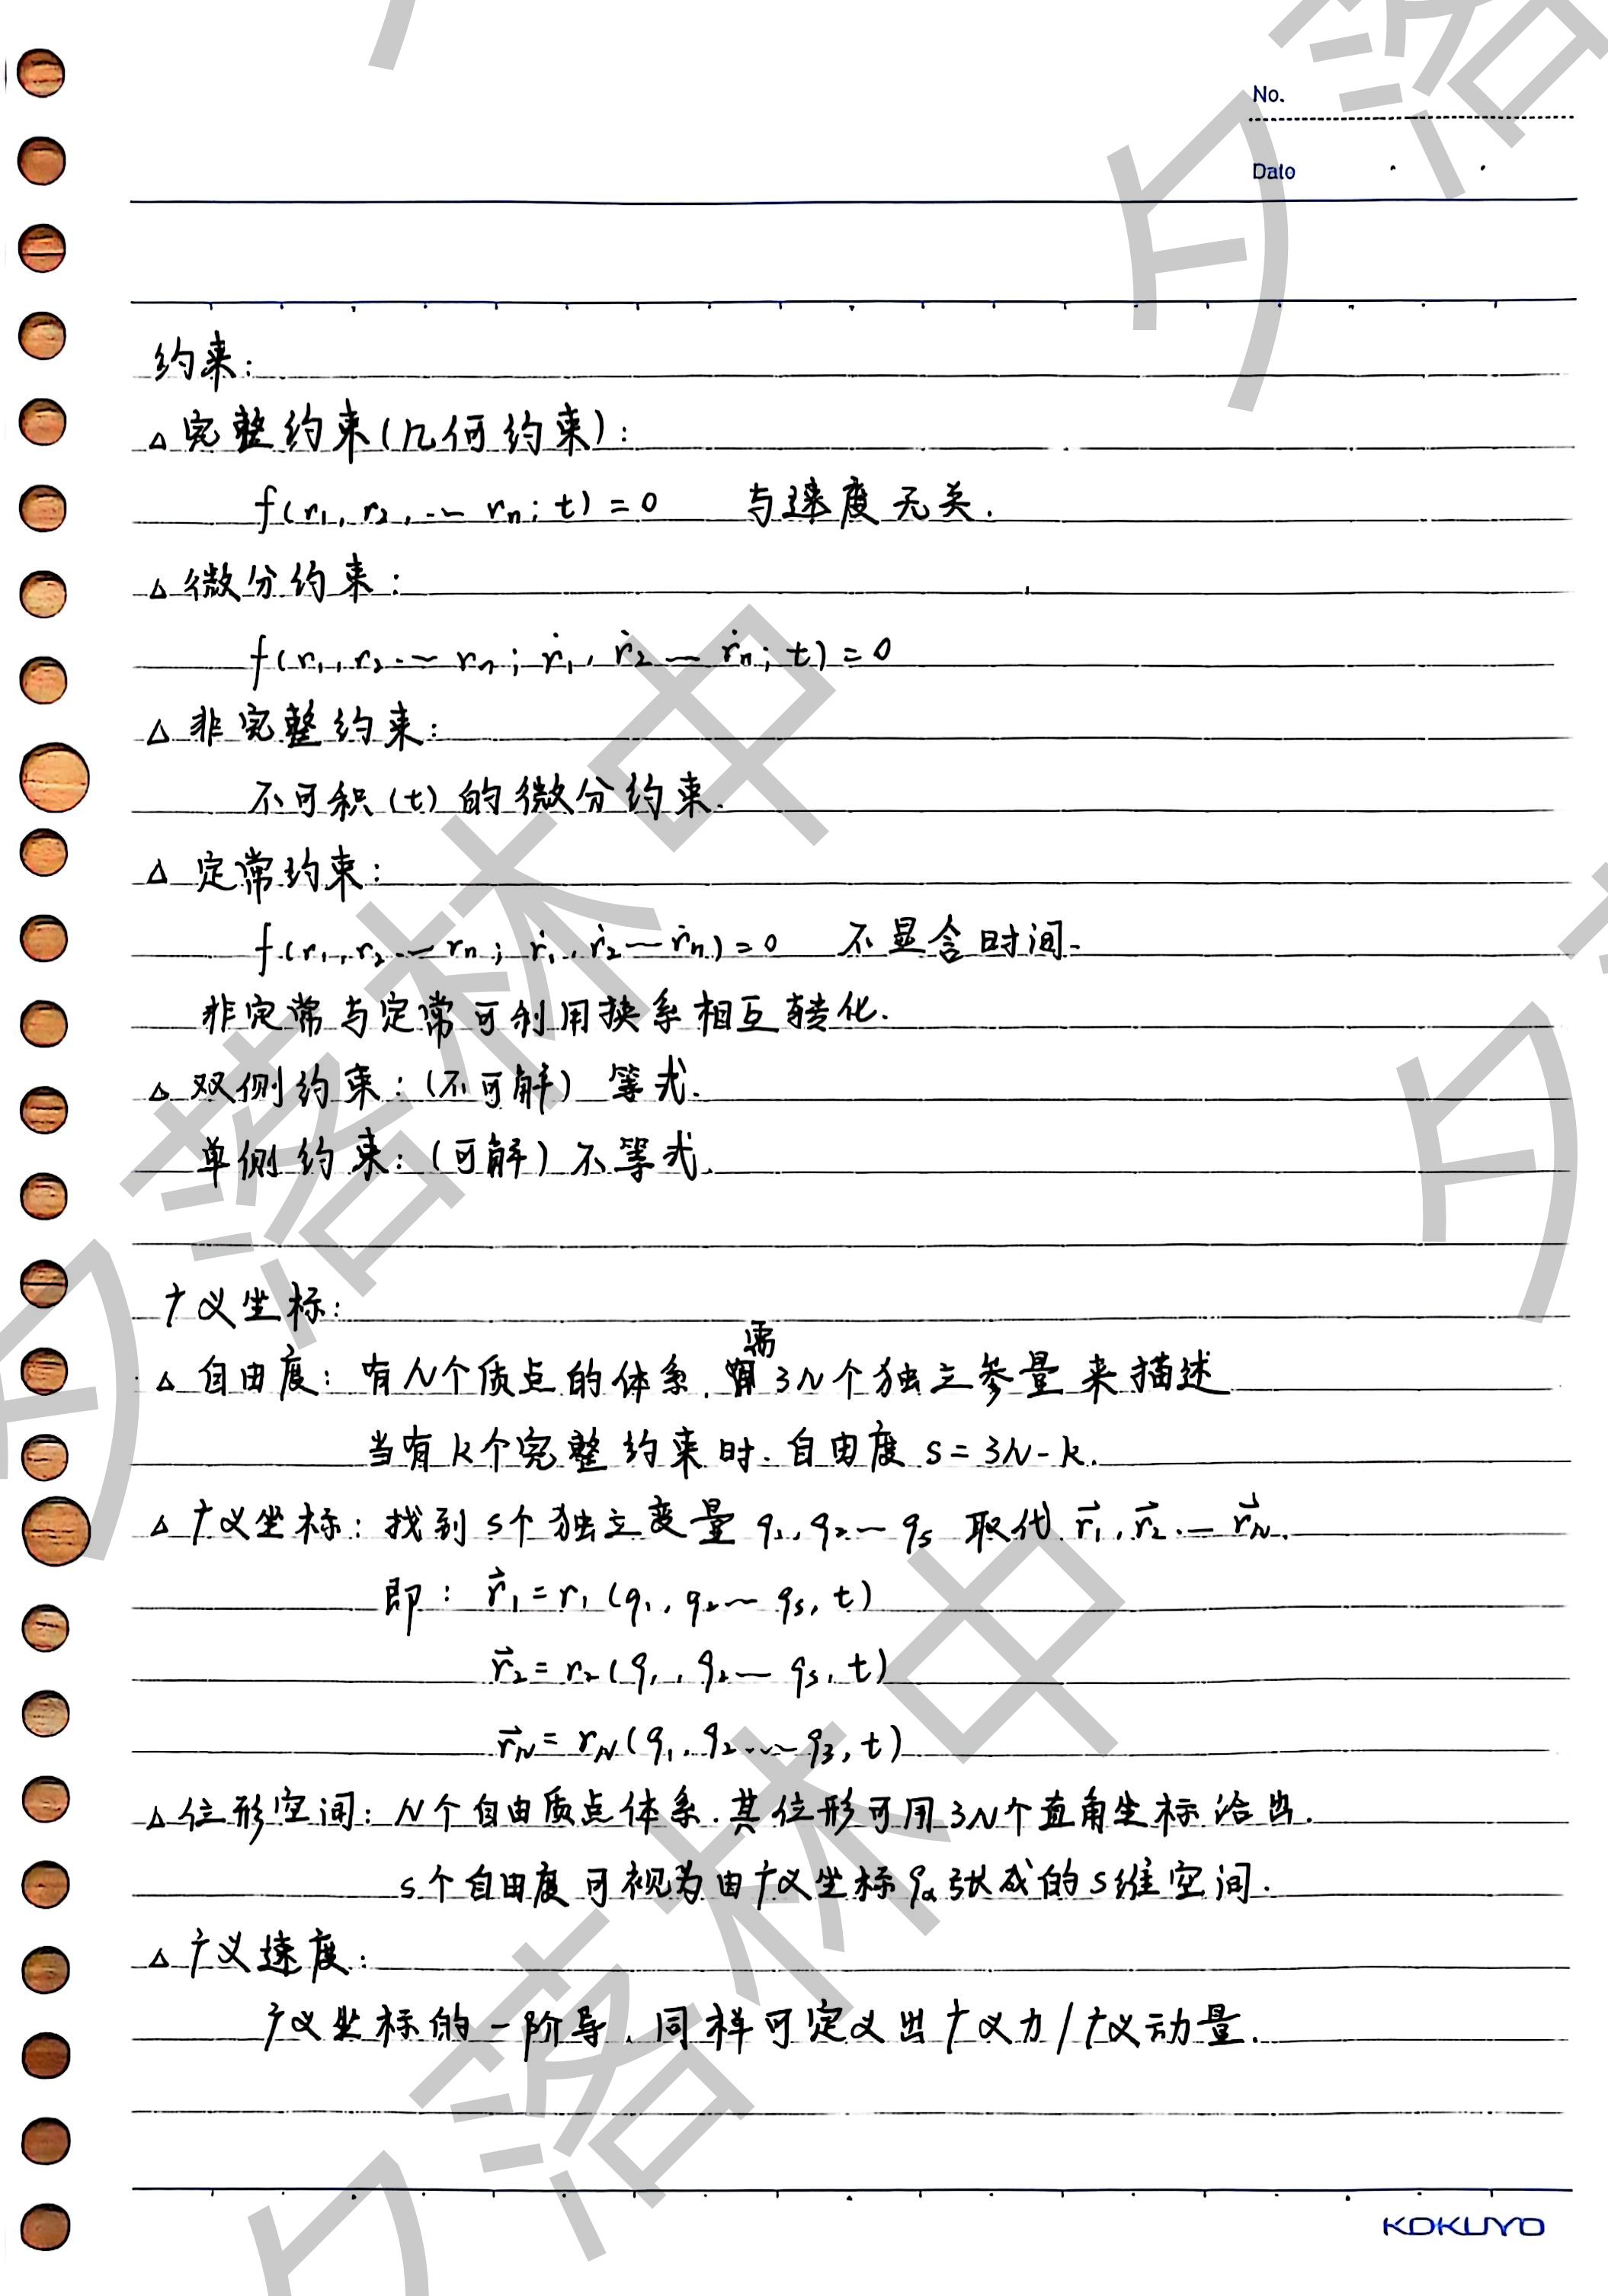 No.
Date
约束:
△ 完整约束(几何约束):
f(r₁, r₂, … rₙ; t) = 0 与速度无关.
△ 微分约束:
f(r₁, r₂ … rₙ; ṙ₁, ṙ₂ … ṙₙ; t) = 0
△ 非完整约束:
不可积(t)的微分约束.
△ 定常约束:
f(r₁, r₂ … rₙ; ṙ₁, ṙ₂ … ṙₙ) = 0 不显含时间.
非定常与定常可利用换系相互转化.
△ 双侧约束:(不可解) 等式.
单侧约束:(可解) 不等式.
广义坐标:
△ 自由度: 有N个质点的体系, 需3N个独立参量来描述
当有k个完整约束时. 自由度 s = 3N - k.
△ 广义坐标: 找到 s个独立变量 q₁, q₂ … qs 取代 r⃗₁, r⃗₂, … r⃗N.
即: r⃗₁ = r₁ (q₁, q₂ … qs, t)
r⃗₂ = r₂ (q₁, q₂ … qs, t)
r⃗N = rN (q₁, q₂ … q₃, t)
△ 位形空间: N个自由质点体系. 其位形可用3N个直角坐标给出.
s个自由度可视为由广义坐标qα张成的s维空间.
△ 广义速度:
广义坐标的一阶导, 同样可定义出广义力/广义动量.
KOKUYO
夕落林中
夕落林中
夕落
夕